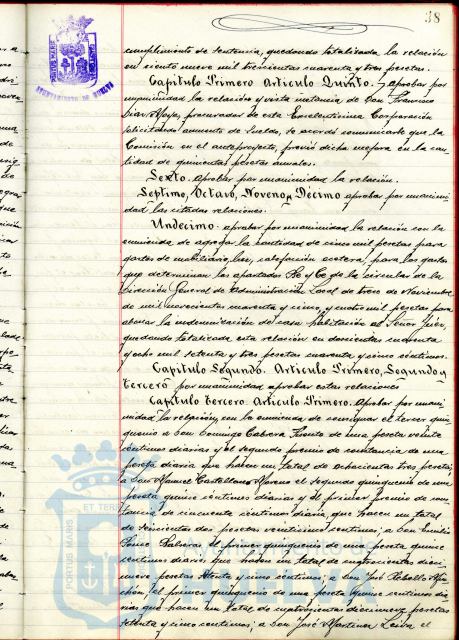 38
cumplimiento de sentencia, quedando totalizada la relación
en ciento nueve mil trescientas cuarenta y tres pesetas.
Capítulo Primero Artículo Quinto. Aprobar por
unanimidad la relación y vista instancia de Don Francisco
Díaz procurador de esta Excelentísima Corporación
solicitando aumento de sueldo, se acordó comunicarle que la
Comisión en el anteproyecto, previó dicha mejora en la can-
tidad de quinientas pesetas anuales.
Sexto. Aprobar por unanimidad la relación.
Septimo, Octavo, Noveno y Décimo aprobar por unanimi-
dad las citadas relaciones.
Undecimo. aprobar por unanimidad la relación con la
enmienda de agregar la cantidad de cinco mil pesetas para
gastos de mobiliario, luz, calefacción etcetera, para los gastos
que determinan los apartados B y C de la circular de la
Dirección General de Administración Local de trece de Noviembre
de mil novecientos cuarenta y cinco, y cuatro mil pesetas para
abonar la indemnización de casa habitación al Señor Juez,
quedando totalizada esta relación en doscientas cuarenta
y ocho mil setenta y tres pesetas cuarenta y cinco céntimos.
Capítulo Segundo. Artículo Primero, Segundo y
Tercero por unanimidad aprobar estas relaciones
Capítulo Tercero Artículo Primero. Aprobar por unani-
midad la relación, con la enmienda de consignar el tercer quin-
quenio a Don Domingo Cabrera de una peseta veinte
centimos diarias y el segundo premio de constancia de una
peseta diaria que hacen un total de ochocientas tres pesetas,
a Don Manuel Castellano Moreno el segundo quinquenio de una
peseta quince centimos diarias y el primer premio de cons-
tancia de cincuenta centimos diaria, que hacen un total
de seiscientas dos pesetas veinticinco centimos; a Don Emilio
Ponce el primer quinquenio de una peseta quince
centimos diarios que hacen un total de cuatrocientas dieci-
nueve pesetas setenta y cinco centimos; a Don José Rebollo
el primer quinquenio de una peseta quince centimos dia-
rias que hacen un total de cuatrocientas diecinueve pesetas
setenta y cinco centimos; a Don José Martinez Leiva el
AYUNTAMIENTO DE HUELVA
PORTUS MARIS
ET TERRAE
Ayuntamiento de